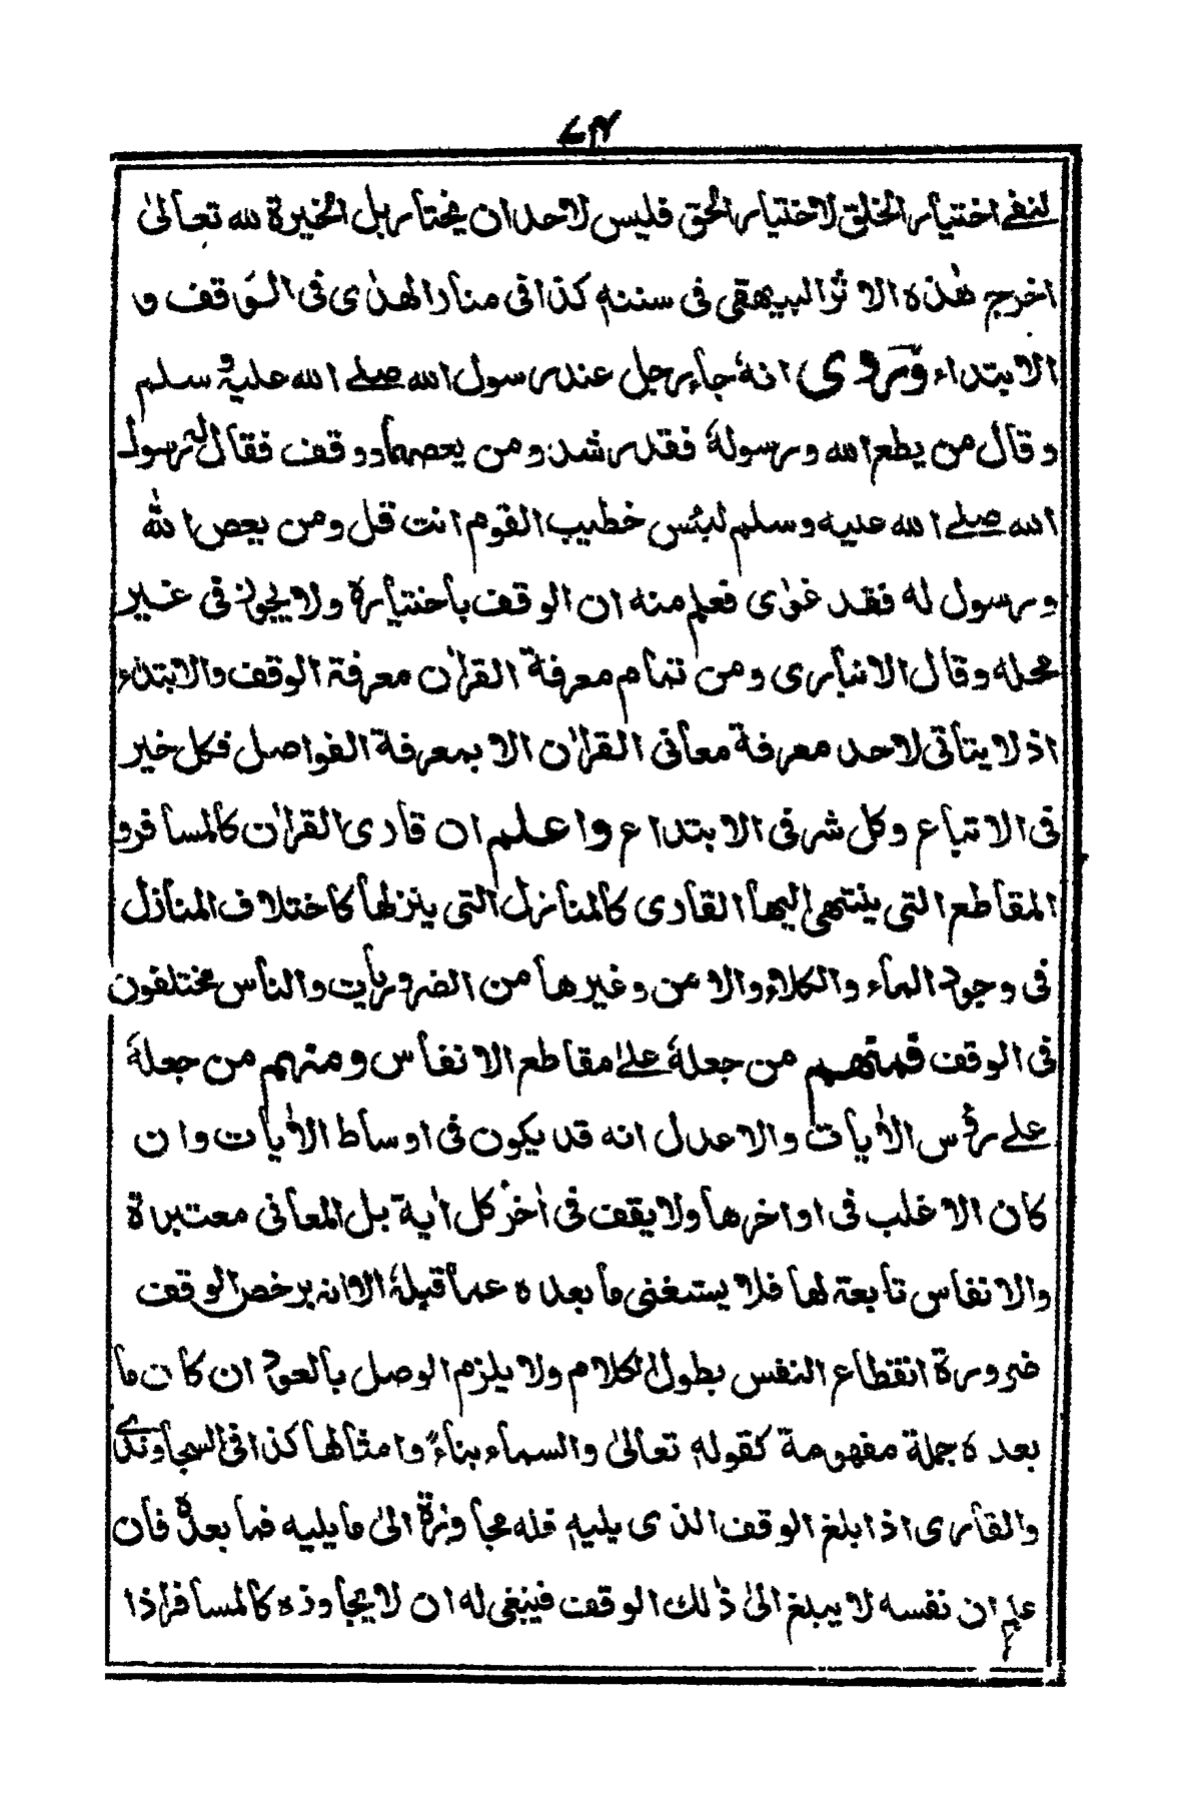 لنفے اختیار الخلق لاختیار الحق فلیس لاحد ان یختار بل الخیرة لله تعالیٰ
اخرج هٰذه الاثر البیهقی فی سننه کذا فی منار الهدٰی فی الوقف و
الابتداء وروی انهٗ جاء رجل عند رسول الله صلے الله علیه وسلم
وقال من یطع الله ورسولهٗ فقد رشد ومن یعصهما ووقف فقال له رسول
الله صلے الله علیه وسلم لبئس خطیب القوم انت قل ومن یعص الله
ورسول له فقد غوٰی فعلم منه ان الوقف باختیاره ولا یجوز فی غیر
محله وقال الانباری ومن تمام معرفة القراٰن معرفة الوقف والابتداء
اذ لا یتأتی لاحد معرفة معانی القراٰن الا بمعرفة الفواصل فکل خیر
فی الاتباع وکل شر فی الابتداع واعلم ان قاری القراٰن کالمسافر و
المقاطع التی ینتهی الیها القاری کالمنازل التی ینزلها کاختلاف المنازل
فی وجود الماء والکلاء والامن وغیرها من الضروریات والناس مختلفون
فی الوقف فمنهم من جعلهٗ علےٰ مقاطع الانفاس ومنهم من جعلهٗ
علے رؤس الاٰیات والاعدل انه قد یکون فی اوساط الاٰیات وان
کان الاغلب فی اواخرها ولا یقف فی اٰخر کل اٰیة بل المعانی معتبرة
والانفاس تابعة لها فلا یستغنی ما بعده عما قبلهٗ الا انه یرخص الوقف
ضرورة انقطاع النفس بطول الکلام ولا یلزم الوصل بالعود ان کان ما
بعده جملة مفهومة کقوله تعالیٰ والسماء بناءً وامثالها کذا فی السجاوندی
والقاری اذا بلغ الوقف الذی یلیه فله مجاوزة الیٰ ما یلیه فما بعدهٗ فان
علم ان نفسه لا یبلغ الیٰ ذٰلك الوقف فینبغی له ان لا یجاوزه کالمسافر اذا